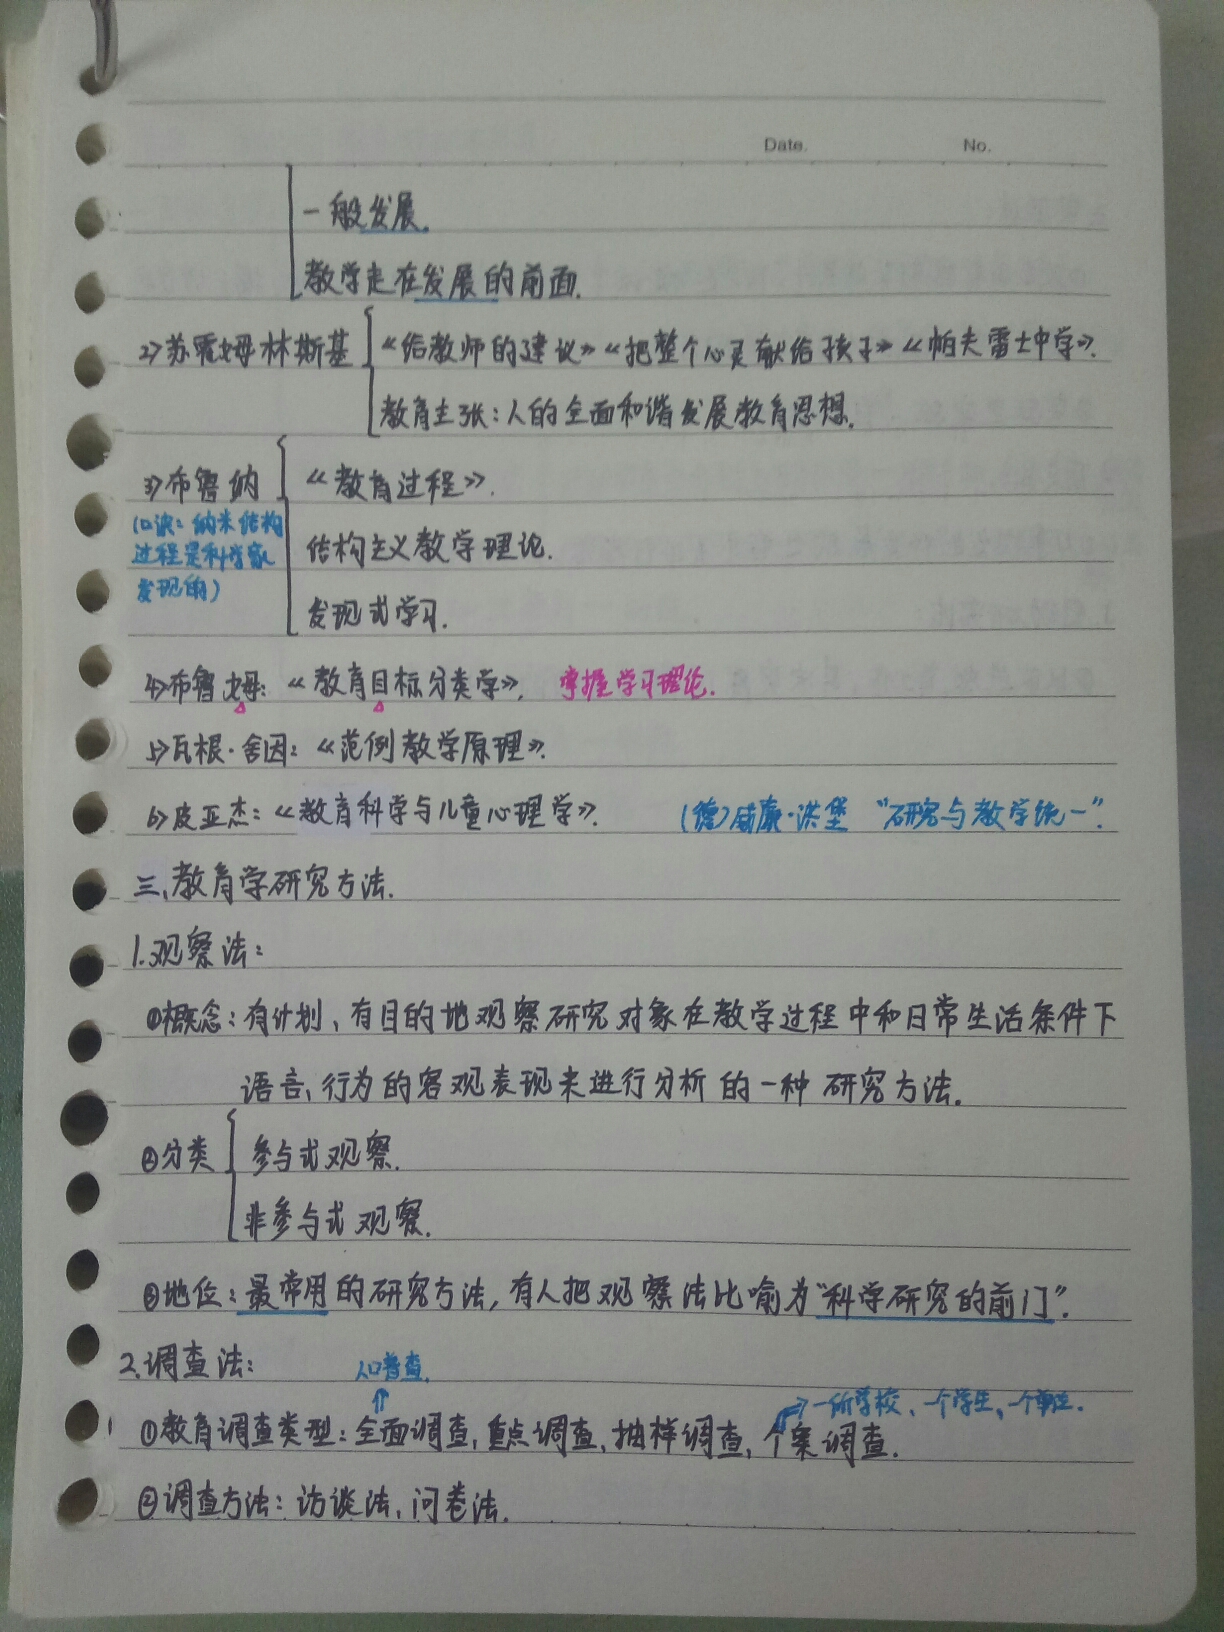 Date.
No.
一般发展.
教学走在发展的前面.
2>苏霍姆林斯基
《给教师的建议》《把整个心灵献给孩子》《帕夫雷士中学》.
教育主张:人的全面和谐发展教育思想.
3>布鲁纳
(口诀:纳米结构
过程是科学家
发现的)
《教育过程》.
结构主义教学理论.
发现式学习.
4>布鲁姆:《教育目标分类学》. 掌握学习理论.
5>瓦根·舍因:《范例教学原理》.
6>皮亚杰:《教育科学与儿童心理学》. (德)威廉·洪堡 “研究与教学统一”.
三、教育学研究方法.
1.观察法:
①概念:有计划、有目的地观察研究对象在教学过程中和日常生活条件下
语言、行为的客观表现来进行分析的一种研究方法.
②分类
参与式观察.
非参与式观察.
③地位:最常用的研究方法,有人把观察法比喻为“科学研究的前门”.
2.调查法:
人口普查.
一所学校、一个学生、一个单位.
①教育调查类型:全面调查,重点调查,抽样调查,个案调查.
②调查方法:访谈法、问卷法.